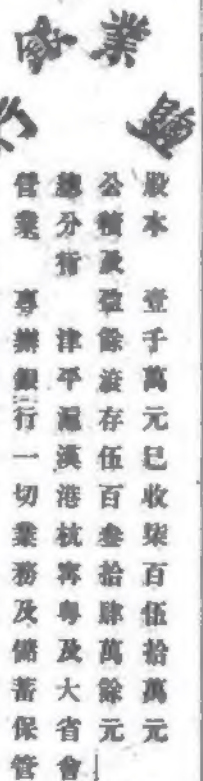 鹽業
會
股本　壹千萬元已收柒百伍拾萬元
公積及盈餘滾存伍百叁拾肆萬餘元
總分行　津平滬漢港杭寗粵及大省會
營業　專辦銀行一切業務及儲蓄保管